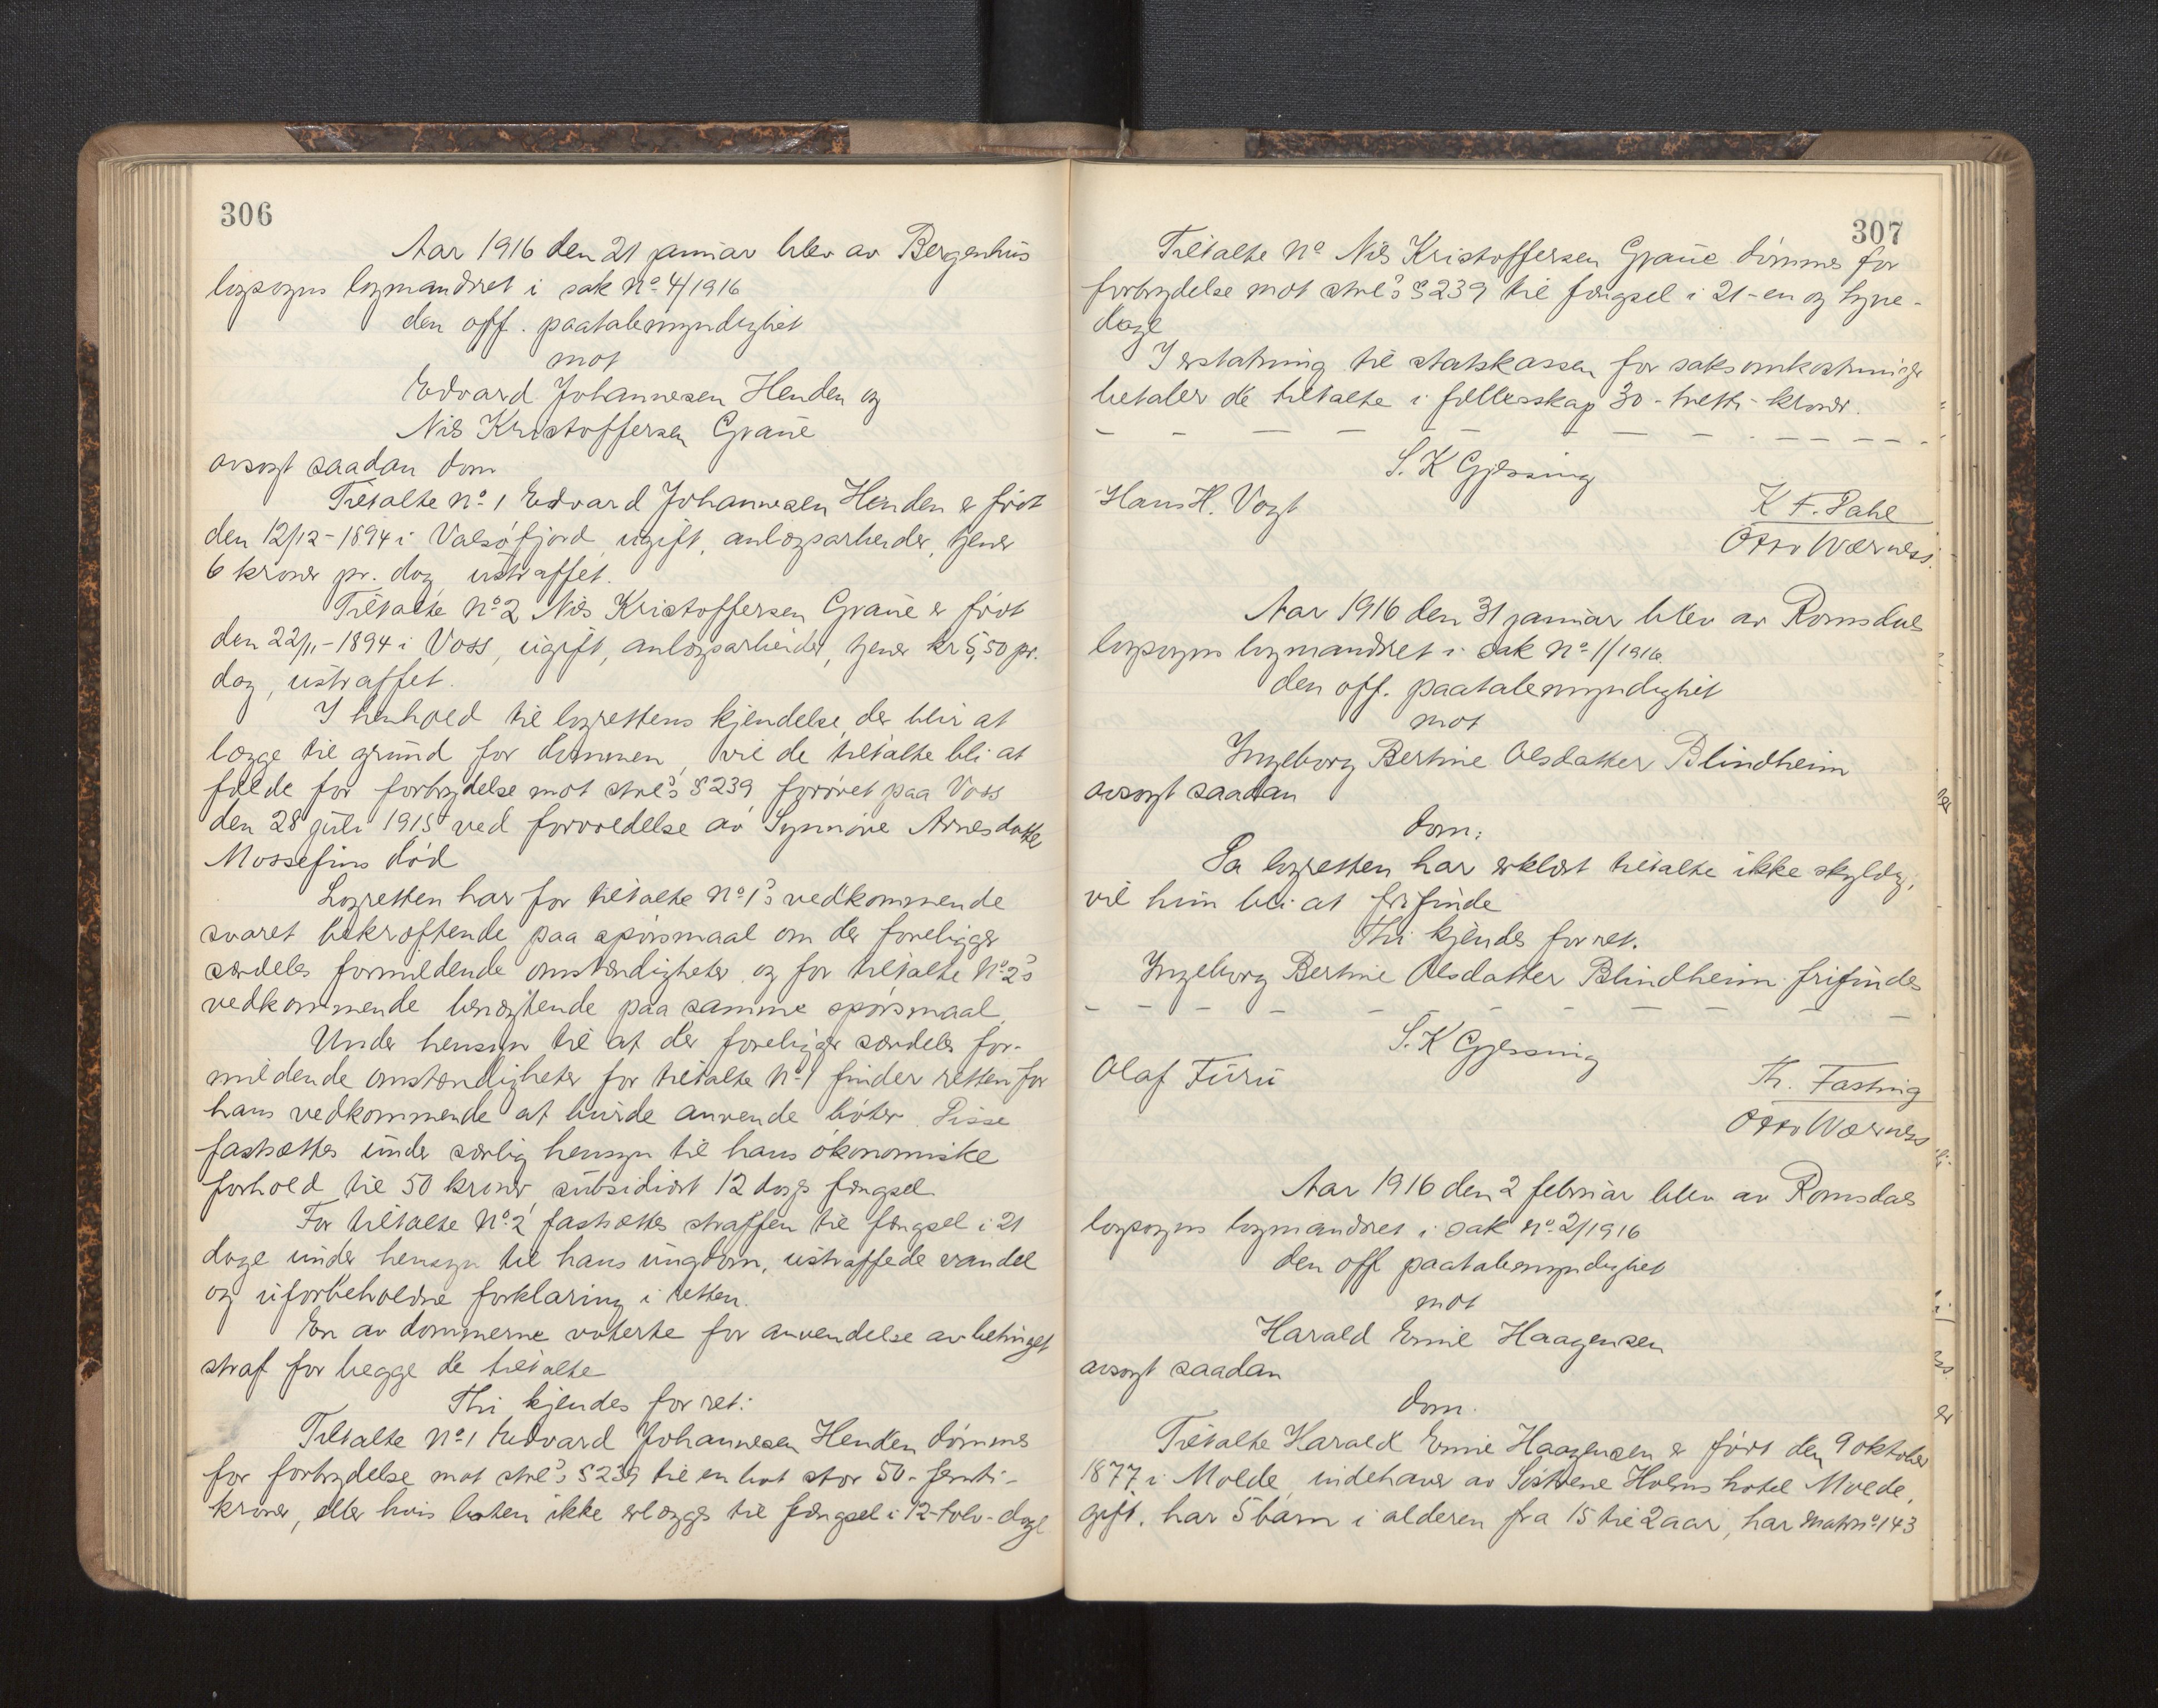 306
Aar 1916 den 21 januar blev av Bergenhus
lagsogns lagmandsret i sak No. 4/1916
den off. paatalemyndighet
mot
Edvard Johannesen Henden og
Nils Kristoffersen Graue
avsagt saadan dom
Tiltalte No. 1 Edvard Johannesen Henden er født
den 12/12-1894 i Valsøfjord, ugift, anlægsarbeider, tjener
6 kroner pr. dag ustraffet.
Tiltalte No. 2 Nils Kristoffersen Graue er født
den 22/11-1894 i Voss, ugift, anlægsarbeider, tjener kr 5,50 pr.
dag, ustraffet.
I henhold til lagrettens kjendelse, der blir at
lægge til grund for dommen, vil de tiltalte bli at
fælde for forbrydelse mot strl's § 239, forøvet paa Voss
den 28 juli 1915 ved forvoldelse av Synnøve Arnesdatter
Mossefins død
Lagretten har for tiltalte No. 1's vedkommende
svaret bekræftende paa spørsmaal om der foreligger
særdeles formildende omstændigheter og for tiltalte No. 2's
vedkommende benægtende paa samme spørsmaal.
Under hensyn til at der foreligger særdeles for-
mildende omstændigheter for tiltalte No. 1 finder retten for
hans vedkommende at burde anvende bøter. Disse
fastsættes under særlig hensyn til hans økonomiske
forhold til 50 kroner, subsidiært 12 dags fængsel.
For tiltalte No. 2 fastsættes straffen til fængsel i 21
dage under hensyn til hans ungdom, ustraffede vandel
og uforbeholdne forklaring i retten.
En av dommerne voterte for anvendelse av betinget
straf for begge de tiltalte
Thi kjendes for ret:
Tiltalte No. 1 Edvard Johannesen Henden dømmes
for forbrydelse mot strl's § 239 til en bot stor 50 - femti -
kroner, eller hvis boten ikke erlægges til fængsel i 12 - tolv - dage
307
Tiltalte No Nils Kristoffersen Graue dømmes for
forbrydelse mot strl's § 239 til fængsel i 21 - en og tyve -
dage
I erstatning til statskassen for saksomkostninger
betaler de tiltalte i fællesskap 30 - tretti - kroner.
S. K Gjessing
Hans H. Vogt
K F. Dahl
Otto Wærness.
Aar 1916 den 31 januar blev av Romsdals
lagsogns lagmandsret i sak No. 1/1916
den off. paatalemyndighet
mot
Ingeborg Bertine Olsdatter Blindheim
avsagt saadan
dom:
Da lagretten har erklært tiltalte ikke skyldig,
vil hun bli at frifinde
Thi kjendes for ret.
Ingeborg Bertine Olsdatter Blindheim frifindes
S. K Gjessing
Olaf Furu
Th. Fasting
Otto Wærness
Aar 1916 den 2 februar blev av Romsdals
lagsogns lagmandsret i sak No. 2/1916
den off paatalemyndighet
mot
Harald Emil Haagensen
avsagt saadan
dom.
Tiltalte Harald Emil Haagensen er født den 9 oktober
1877 i Molde, indehaver av Søstrene Holms hotel Molde,
gift, har 5 barn i alderen fra 15 til 2 aar, har matr No. 143